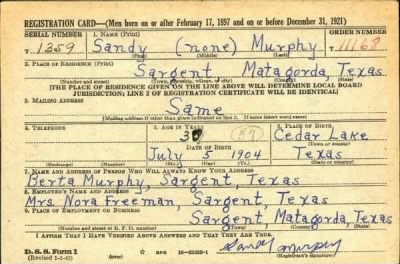 REGISTRATION CARD—(Men born on or after February 17, 1897 and on or before December 31, 1921)
SERIAL NUMBER 1. NAME (Print) ORDER NUMBER
T 1359 Sandy (none) Murphy T 11168
(First) (Middle) (Last)
2. PLACE OF RESIDENCE (Print)
Sargent Matagorda, Texas
(Number and street) (Town, township, village, or city) (County) (State)
[THE PLACE OF RESIDENCE GIVEN ON THE LINE ABOVE WILL DETERMINE LOCAL BOARD
JURISDICTION; LINE 2 OF REGISTRATION CERTIFICATE WILL BE IDENTICAL]
3. MAILING ADDRESS
Same
[Mailing address if other than place indicated on line 2. If same insert word same]
4. TELEPHONE 5. AGE IN YEARS 6. PLACE OF BIRTH
(37) Cedar Lake
DATE OF BIRTH (Town or county)
July 5 1904 Texas
(Exchange) (Number) (Mo.) (Day) (Yr.) (State or country)
7. NAME AND ADDRESS OF PERSON WHO WILL ALWAYS KNOW YOUR ADDRESS
Berta Murphy, Sargent, Texas
8. EMPLOYER'S NAME AND ADDRESS
Mrs. Nora Freeman, Sargent, Texas
9. PLACE OF EMPLOYMENT OR BUSINESS
Sargent, Matagorda, Texas
(Number and street or R. F. D. number) (Town) (County) (State)
I AFFIRM THAT I HAVE VERIFIED ABOVE ANSWERS AND THAT THEY ARE TRUE.
D. S. S. Form 1
Sandy Murphy
(Registrant's signature)